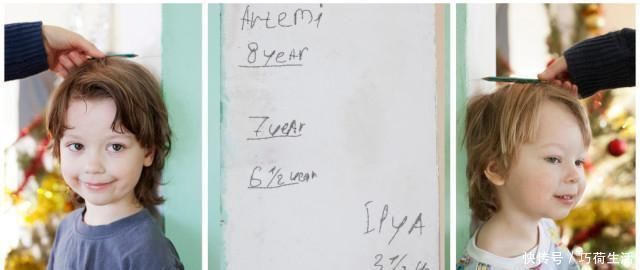 Artemi
8 year
7 year
6 1/2 year
IPyA
3 1/2 y
快传号 / 巧荷生活